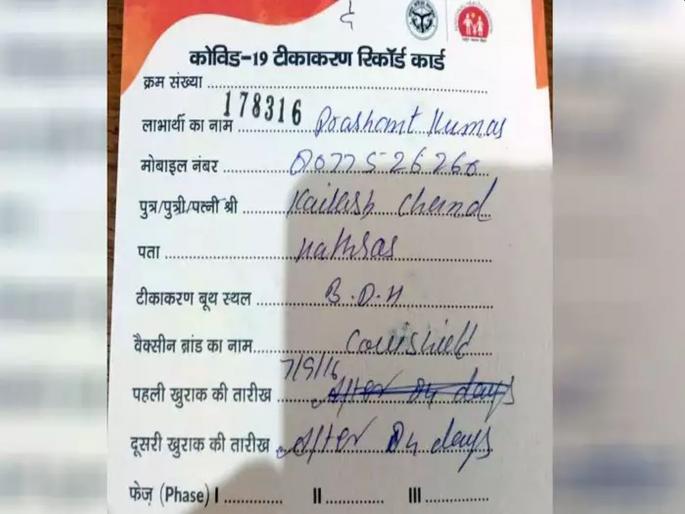 कोविड-19 टीकाकरण रिकॉर्ड कार्ड
क्रम संख्या 178316
लाभार्थी का नाम Prashant Kumar
मोबाइल नंबर
पुत्र/पुत्री/पत्नी श्री Kailash Chand
पता Hathras
टीकाकरण बूथ स्थल B.D.H
वैक्सीन ब्रांड का नाम Covishield
पहली खुराक की तारीख 7/9/16 After 84 days
दूसरी खुराक की तारीख After 84 days
फेज़ (Phase) I II III